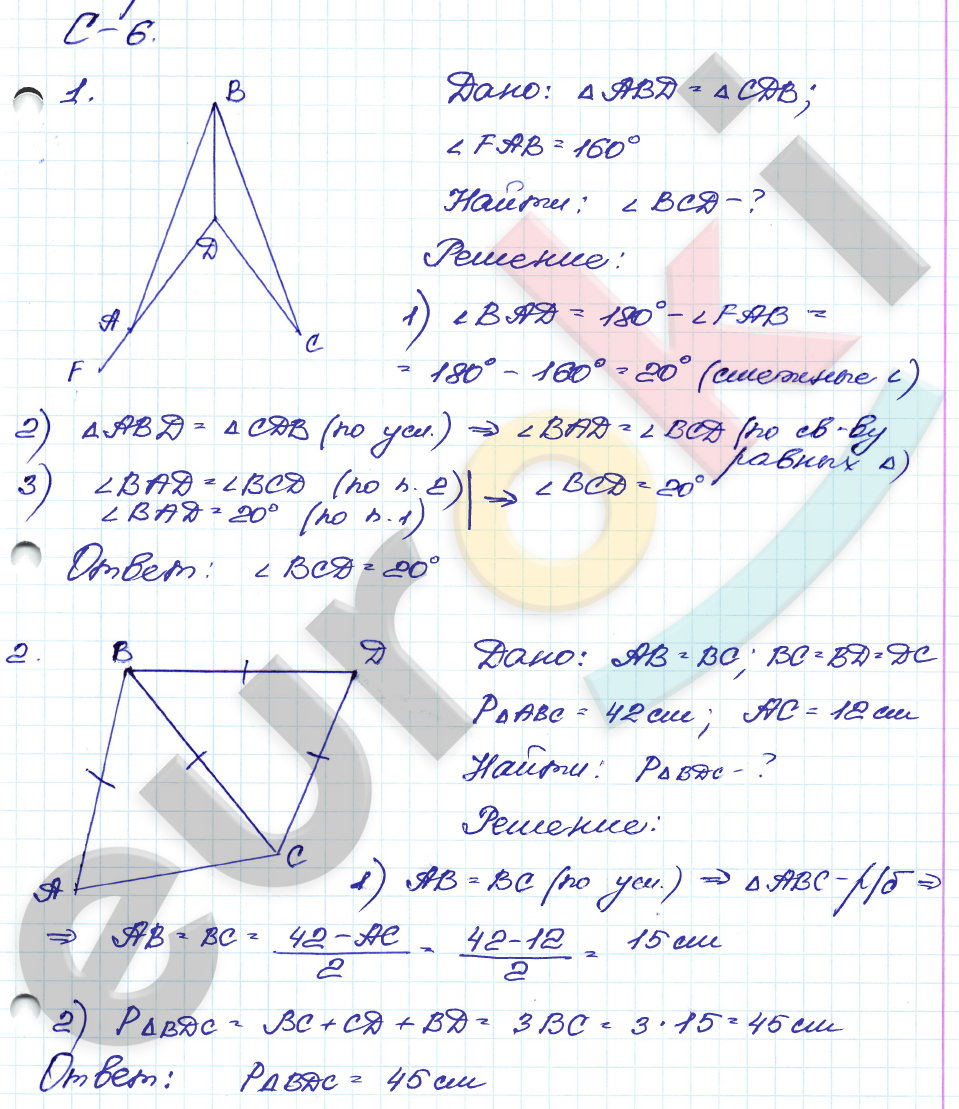 С-6.
1.
B
D
A
F
C
Дано: △ABD = △CDB;
∠FAB = 160°
Найти: ∠BCD - ?
Решение:
1) ∠BAD = 180° - ∠FAB =
= 180° - 160° = 20° (смежные ∠)
2) △ABD = △CDB (по усл.) ⇒ ∠BAD = ∠BCD (по св-ву
равных △)
3) ∠BAD = ∠BCD (по п. 2) | ⇒ ∠BCD = 20°
∠BAD = 20° (по п. 1)
Ответ: ∠BCD = 20°
2.
B
D
A
C
Дано: AB = BC; BC = BD = DC
P△ABC = 42 см; AC = 12 см
Найти: P△BDC - ?
Решение:
1) AB = BC (по усл.) ⇒ △ABC - р/б ⇒
⇒ AB = BC = (42 - AC)/2 = (42 - 12)/2 = 15 см
2) P△BDC = BC + CD + BD = 3BC = 3 · 15 = 45 см
Ответ: P△BDC = 45 см
euroki